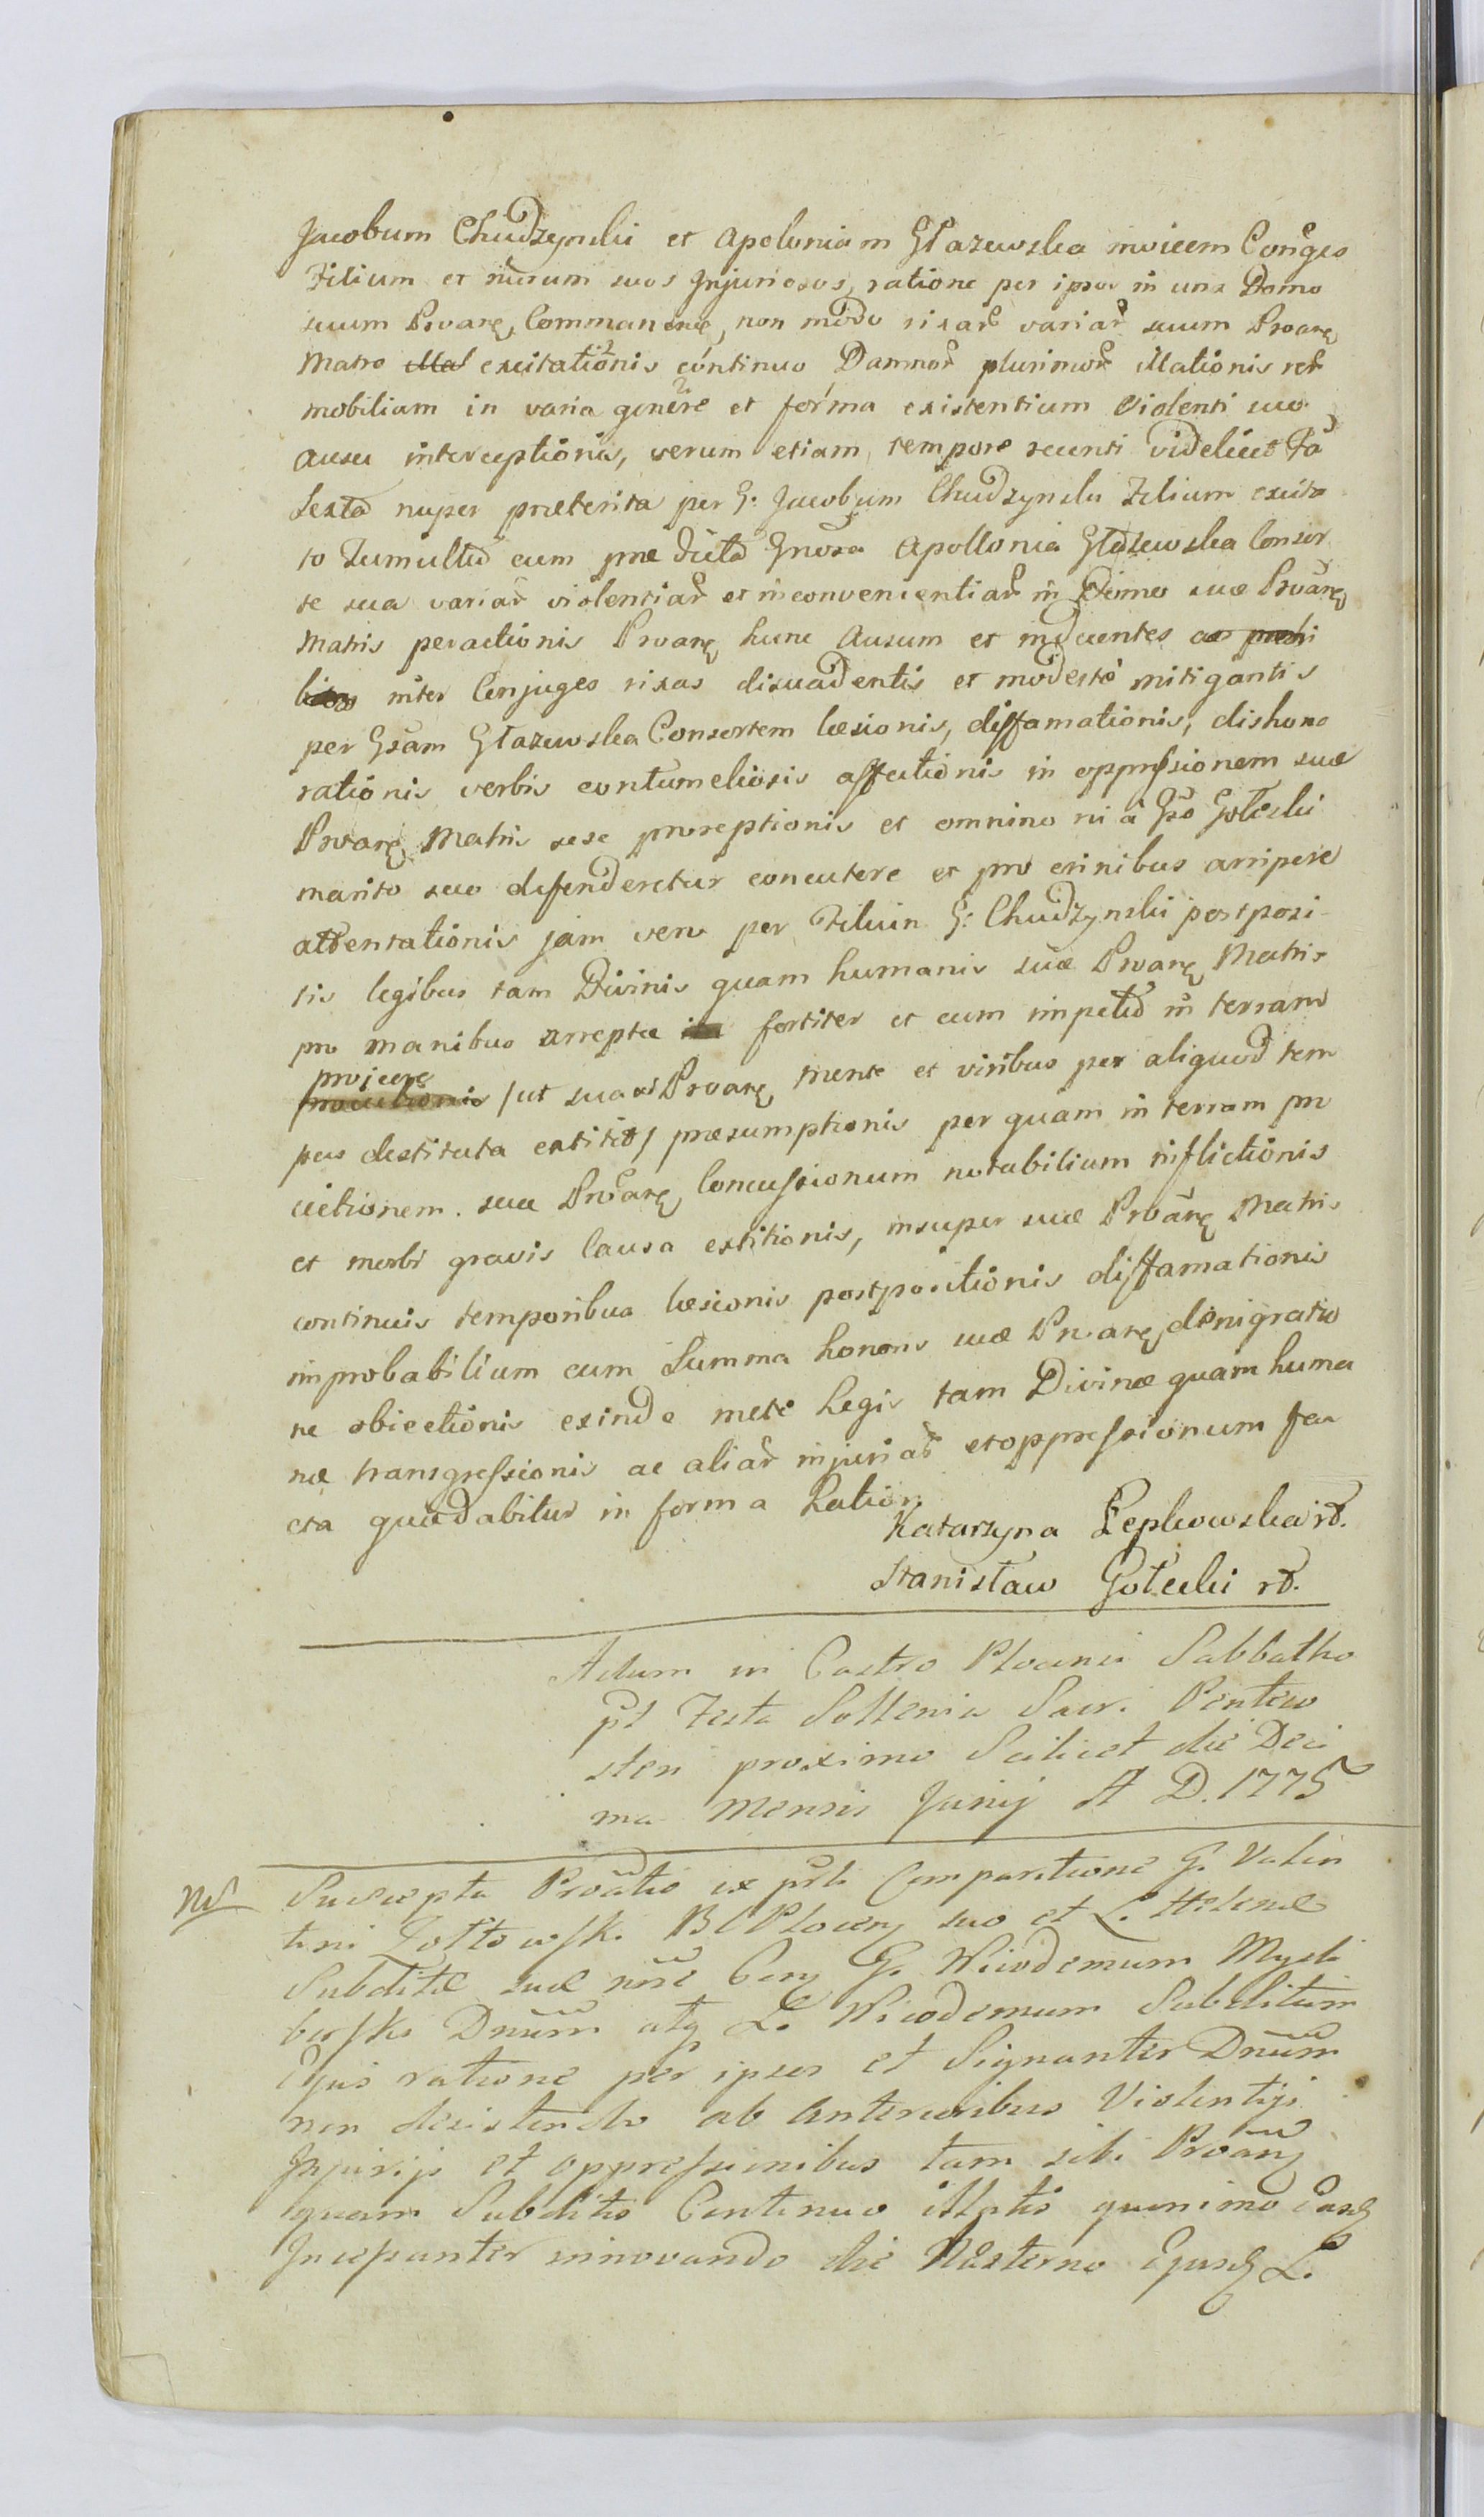 Jacobum Chudzynski et Apoloniam Głazewska invicem Conges
Filium et nurum suos Injuriosos, ratione per ipsos in una Domo
suum Proanę Commanene, non modo rixar variar suum Proanę
Matre excitationis continuo Damnor plurimor illationis rer
mobilium in varia genere et forma existentium Violenti suo
ausu interceptionis, verum etiam tempore recenti videlicet Fa
Sexta nuper præterita per G. Jacobum Chudzynski Filium excita
to Tumultu cum præ dicta Gnosa Apollonia Głazewska Consor
te sua variar violentiar et inconvenientiar in Domo suæ Proanę
Matris peractionis Proanę hunc Ausum et indecentes
inter Conjuges rixas disuadentis et modeste mitigantis
per Gsam Głazewska Consortem læsionis, diffamationis, dishono
rationis verbis contumeliosis affectionis in oppressionem suæ
Proanę Matris sese prореptionis et omnino ni a Gso Gołecki
marito suo defenderetur concutere et pro crinibus arripere
attentationis jam vero per Filium G. Chudzynski postposi
tis legibus tam Divinis quam humanis suæ Proanę Matris
pro manibus arreptæ fortiter et cum impetu in terram
projicere
/ut sua Proanę mente et viribus per aliquod tem
pus destituta extitit/ præsumptionis per quam in terram pro
iectionem suæ Proanę Concussionum notabilium inflictionis
et morbi gravis Causa extitionis, insuper suæ Proanę Matris
continuis temporibus læsionis postpositionis diffamationis
improbabilium cum Summa honoris suæ Proanę denigratio
ne obiectionis exinde metę Legis tam Divinæ quam huma
næ transgressionis ac aliar injuriar et oppressionum fa
cta quædabitur in forma Lation.
Katarzyna Łepkowska rd.
Stanisław Gołecki rd.
Actum in Castro Plocensi Sabbatho
pt Festa Sollenia Sacr. Pentecо
sten proximo Scilicet die Deci
ma Mensis Junij A D. 1775
Suscepta Proatio ex prte Comparitione G. Valen
tini Zołtowsk. B C Plocen suo et L. Helenæ
Subditæ suæ nne Con G. Nicodemum Mysli
borski Dnum atq L. Nicodemum Subditum
Ejus ratione per ipsos et Signanter Dnum
non desistendo ab anterioribus Violentijs
Injurijs et oppressionibus tam sibi Proan
quam Subditis Continuo illatis quinimo Easd
Incessanter innovando die Hesterno Ejusd L.